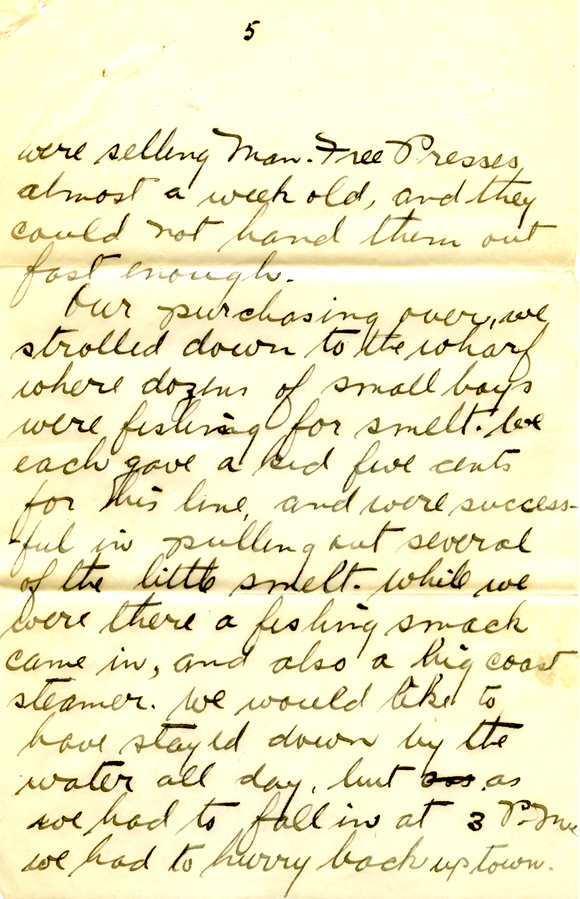 5
were selling Man. Free Presses
almost a week old, and they
could not hand them out
fast enough.
Our purchasing over, we
strolled down to the wharf
where dozens of small boys
were fishing for smelt. We
each gave a kid five cents
for his line, and were success-
-ful in pulling out several
of the little smelt. While we
were there a fishing smack
came in, and also a big coast
steamer. We would like to
have stayed down by the
water all day, but as
we had to fall in at 3 P.M.
we had to hurry back up town.